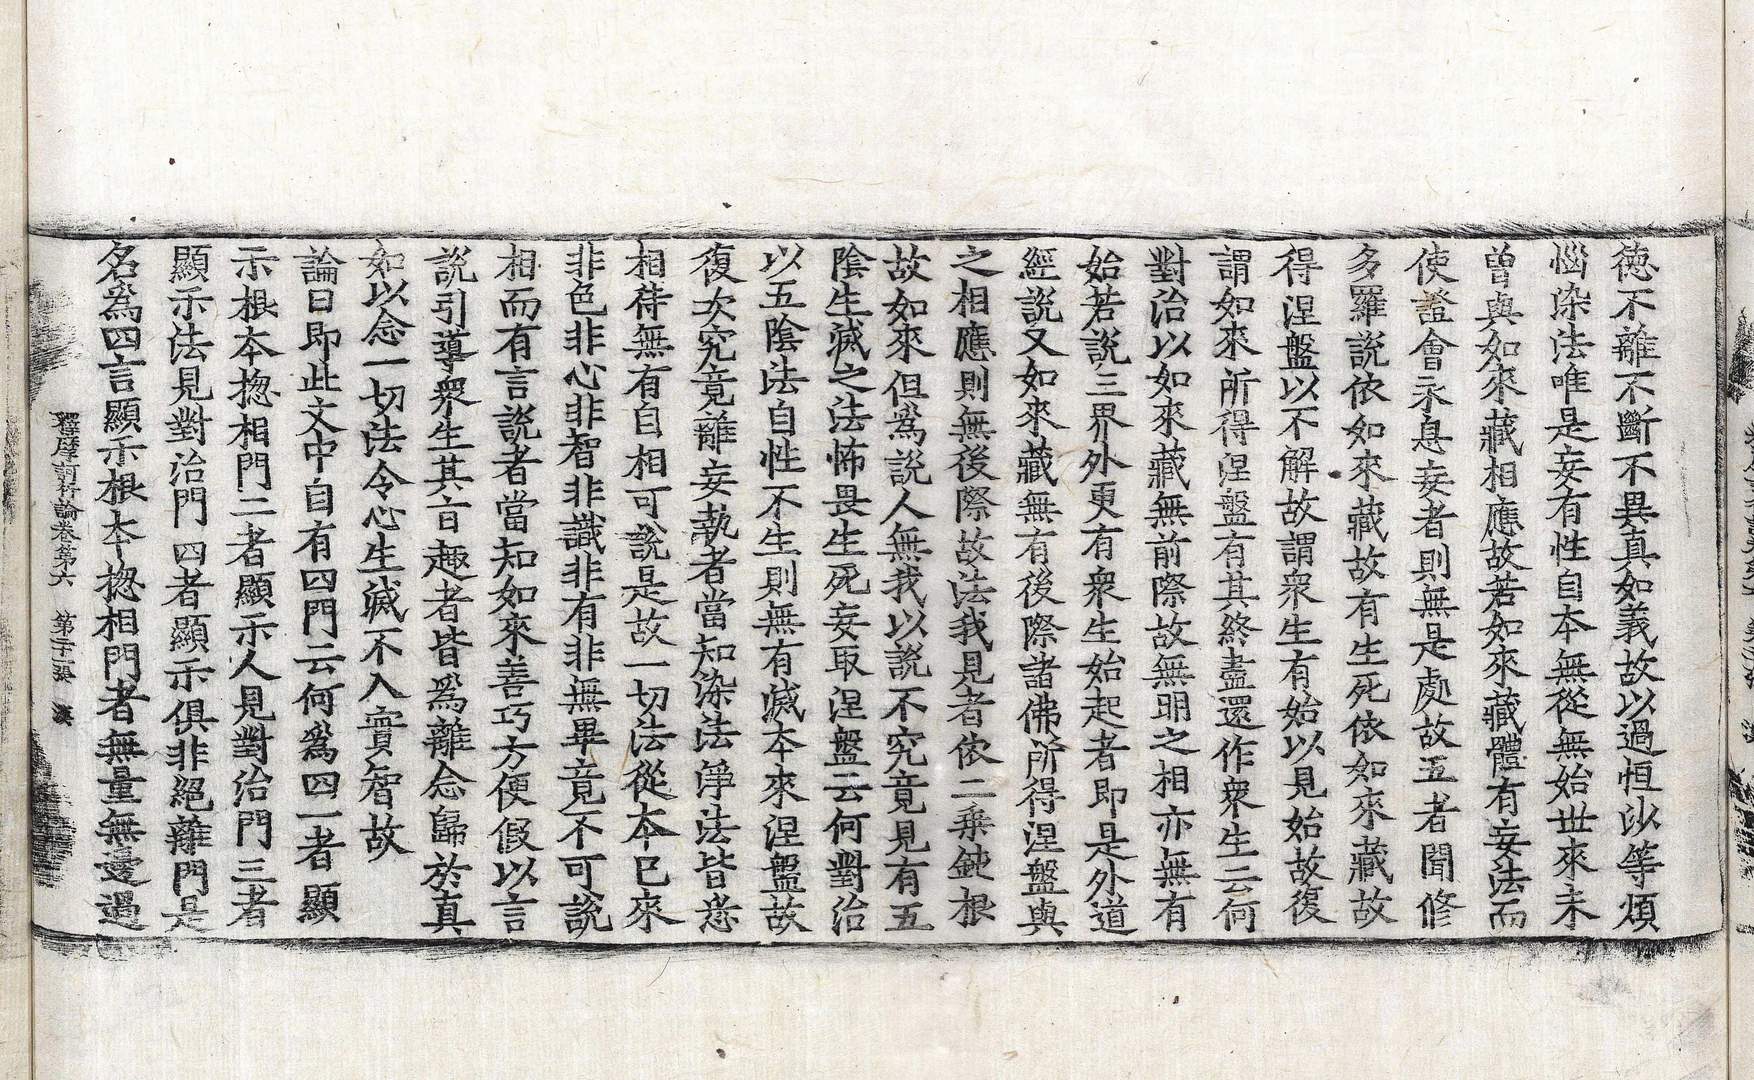 德不離不斷不異真如義故以過恒沙等煩
惱染法唯是妄有性自本無從無始世來未
曾與如來藏相應故若如來藏體有妄法而
使證會永息妄者則無是處故五者聞修
多羅說依如來藏故有生死依如來藏故
得涅盤以不解故謂衆生有始以見始故復
謂如來所得涅盤有其終盡還作衆生云何
對治以如來藏無前際故無明之相亦無有
始若說三界外更有衆生始起者即是外道
經說又如來藏無有後際諸佛所得涅盤與
之相應則無後際故法我見者依二乗鈍根
故如來但為說人無我以說不究竟見有五
陰生滅之法怖畏生死妄取涅盤云何對治
以五陰法自性不生則無有滅本來涅盤故
復次究竟離妄執者當知染法淨法皆悉
相待無有自相可說是故一切法從本已來
非色非心非智非識非有非無畢竟不可說
相而有言說者當知如來善巧方便假以言
說引導衆生其旨趣者皆爲離念歸於真
如以念一切法令心生滅不入實智故
論曰即此文中自有四門云何爲四一者顯
示根本揔相門二者顯示人見對治門三者
顯示法見對治門四者顯示俱非絕離門是
名爲四言顯示根本揔相門者無量無邊過
釋摩訶衍論卷第六　第二十二張　漢